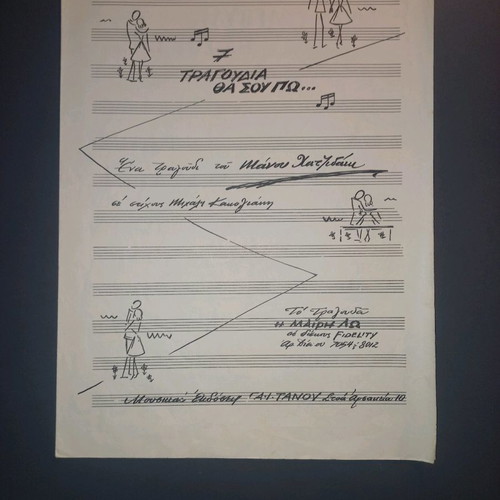 7
ΤΡΑΓΟΥΔΙΑ
ΘΑ ΣΟΥ ΠΩ...
Ἕνα τραγοῦδι τοῦ Μάνου Χατζιδάκι
σέ στίχους Μιχάλη Κακογιάννη
Τό τραγουδᾶ
Η ΜΑΙΡΗ ΛΩ
σέ δίσκους FIDELITY
Ἀρ.
Μουσικαί Ἐκδόσεις ΓΑΪΤΑΝΟΥ Στοά Ἀρσακείου 10